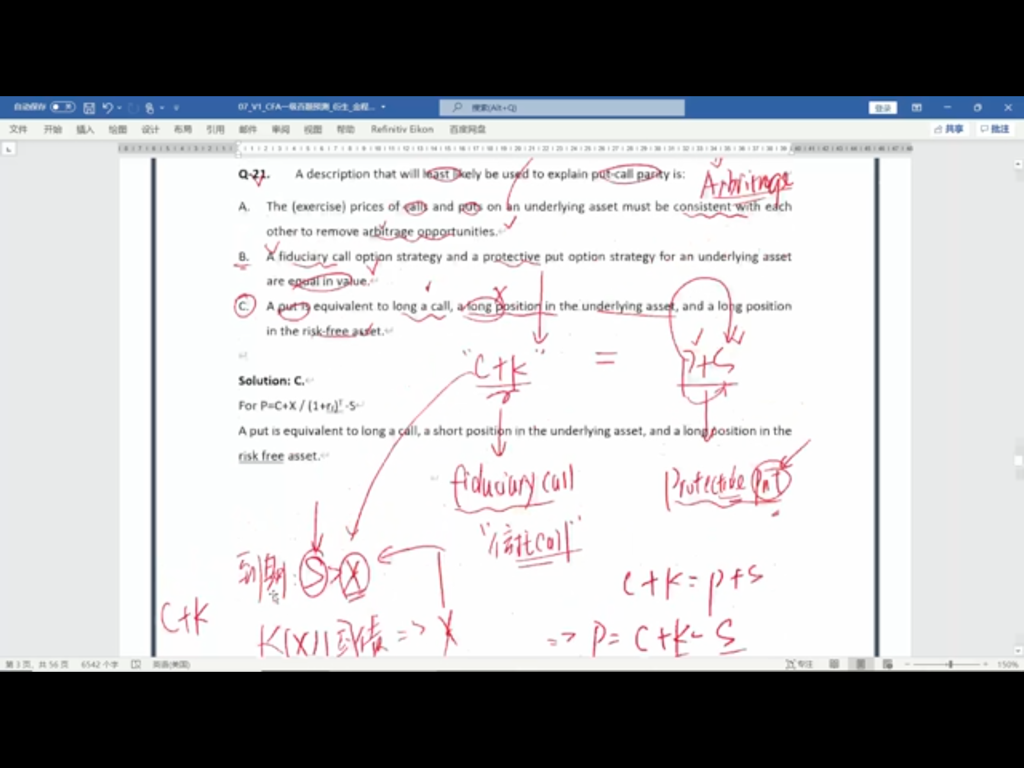 自动保存 关 07_V1_CFA一级百题预测_衍生_金程... 搜索(Alt+Q) 登录
文件 开始 插入 绘图 设计 布局 引用 邮件 审阅 视图 帮助 Refinitiv Eikon 百度网盘 共享 批注
Q-21. A description that will least likely be used to explain put-call parity is:
Arbitrage
A. The (exercise) prices of calls and puts on an underlying asset must be consistent with each
other to remove arbitrage opportunities.
B. A fiduciary call option strategy and a protective put option strategy for an underlying asset
are equal in value.
C. A put is equivalent to long a call, a long position in the underlying asset, and a long position
in the risk-free asset.
"C+K" = P+S
Solution: C.
For P=C+X / (1+rf)T -S
A put is equivalent to long a call, a short position in the underlying asset, and a long position in the
risk free asset.
fiduciary call Protective Put
"信托call"
到期: S>X
C+K=P+S
C+K
K(X)) 国债 => X
=> P= C+K-S
第3页, 共56页 6542个字 英语(美国) 专注 150%